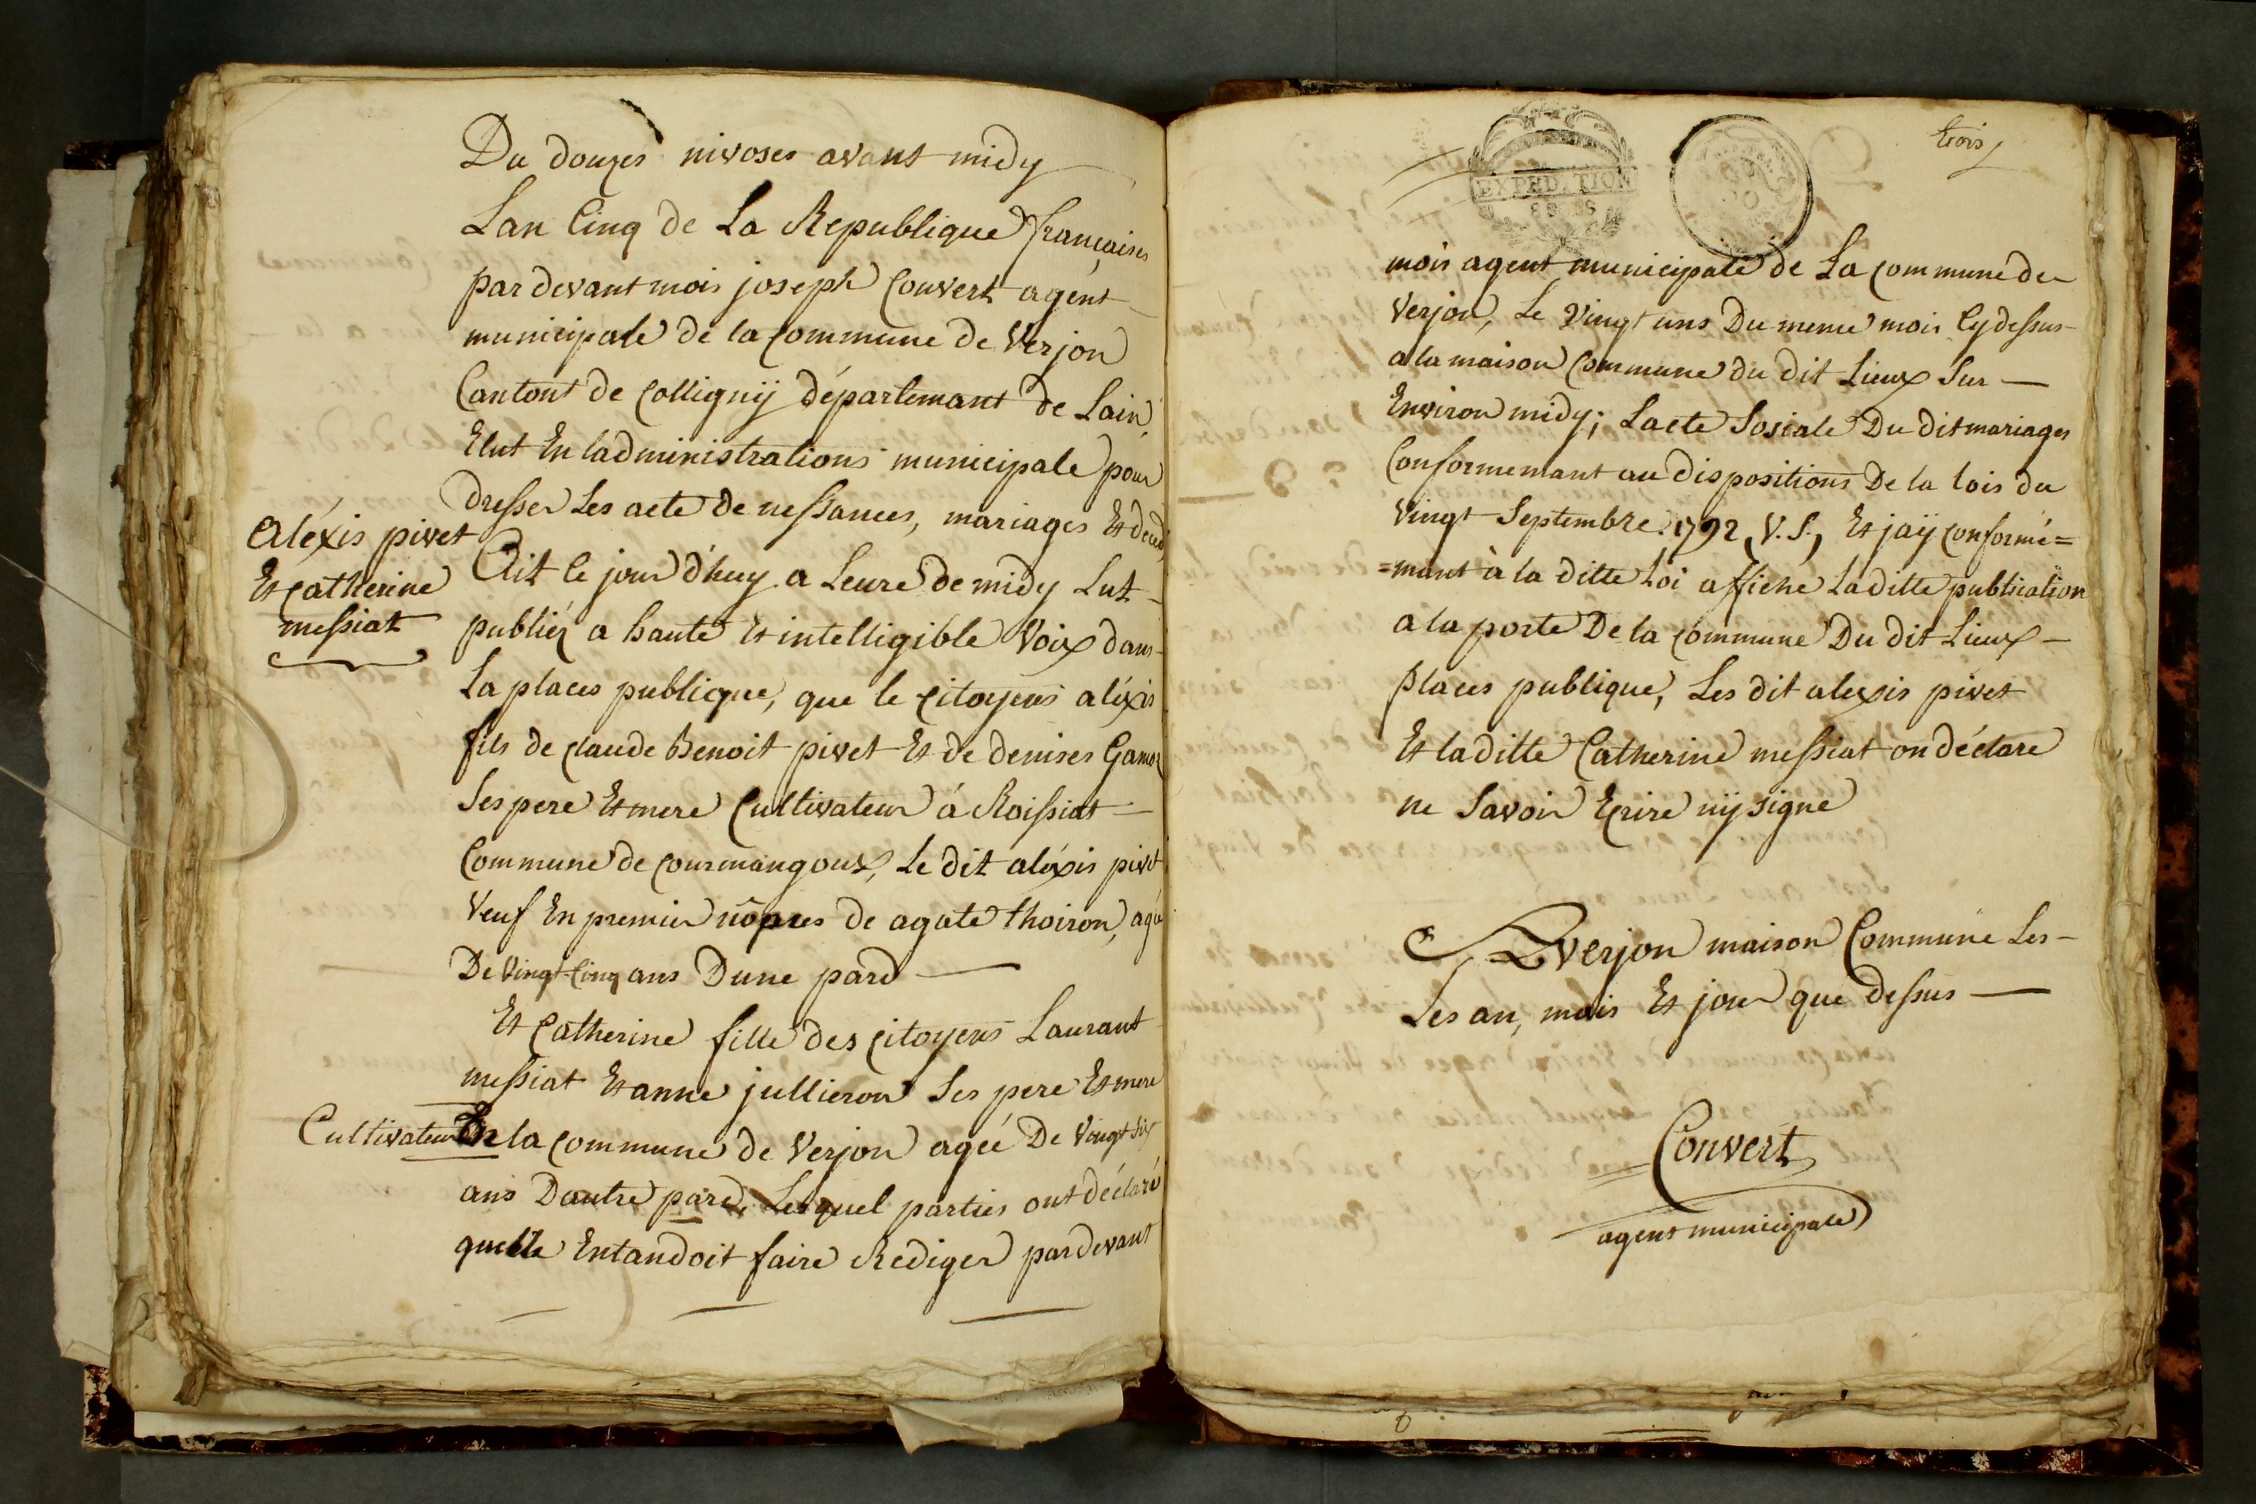 Du douzes nivoses avant midy
Lan Cinq de La Republique françaises
pardevant mois joseph Convert agent
municipale de la commune de Verjon
Cantont de Collignÿ département de Lain
Elut En ladministrations municipale pour
dresser Les acte de nessances, mariages Et deces
Aléxis pivet
Et catherine
messiat
Ait le jour d'huy a Leure de midy Lut
publiéz a haute Et intelligible Voix dans
La places publique, que le Citoyens aléxis
fils de claude Benoit pivet Et de denises
Ses pere Et mere Cultivateur á Roissiat
Commune de courmangoux, Le dit aléxis pivet
Veuf En premier nôpces de agate thoiron, agé
De Vingt Cinq ans Dune pard
Et Catherine fille des Citoyens Laurant
messiat Et anne jullieron Ses pere Et mere
Cultivateur En la commune de Verjon agée De Vingt six
ans Dautre pard, Lesquel parties ont déclaré
quelle Entandoit faire Rediger pardevant
EXPEDITION
trois
mois agent municipale de La commune de
Verjon, Le Vingt uns Du meme mois Cy dessus
a la maison Commune du dit Lieux Sur
Environ midy; Lacte Sosiale Du dit mariages
Conformemant au dispositions De la lois du
Vingt Septembre 1792, V. S., Et jaÿ conformé=
=mant à la ditte Loi affiche La ditte publsiation
a la porte De la commune Du dit Lieux
places publique, Les dit alexsis pivet
Et la ditte Catherine messiat on déclare
ne Savoir Ecrire nÿ signe
A verjon maison Commune Les
Les an, mois Et jour que dessus
Convert
agent municipale